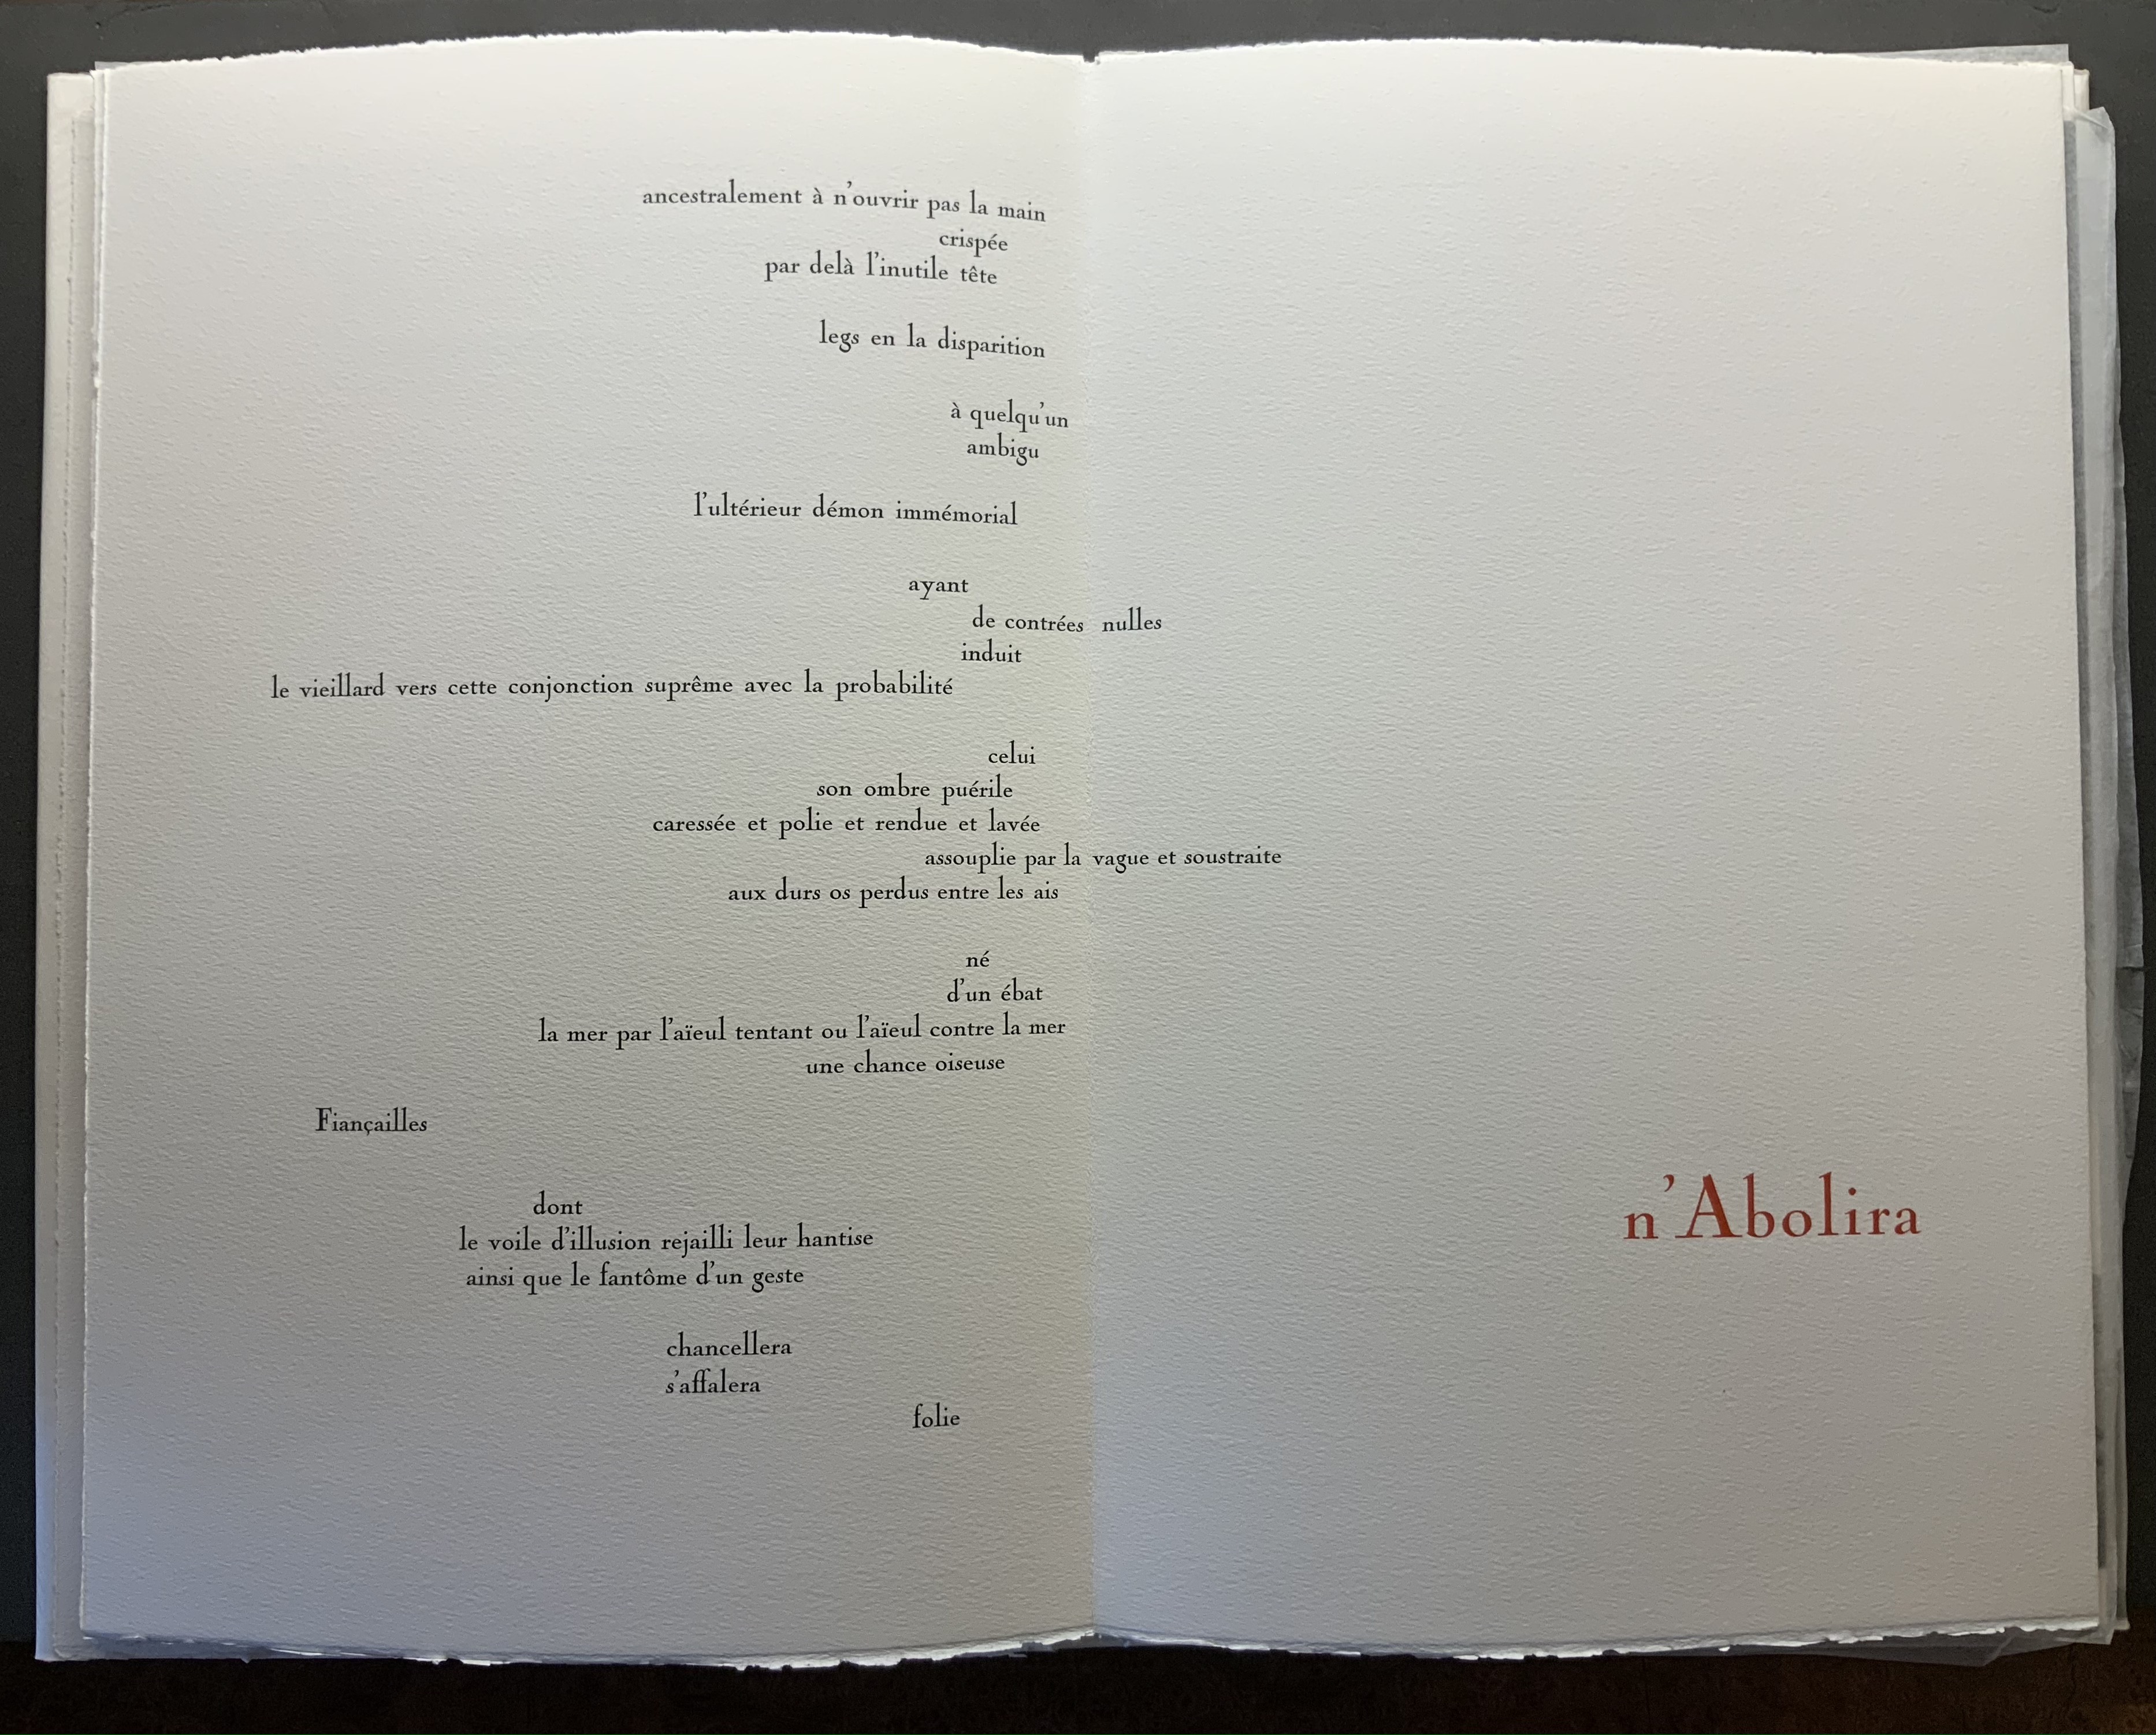 ancestralement à n'ouvrir pas la main
crispée
par delà l'inutile tête
legs en la disparition
à quelqu'un
ambigu
l'ultérieur démon immémorial
ayant
de contrées nulles
induit
le vieillard vers cette conjonction suprême avec la probabilité
celui
son ombre puérile
caressée et polie et rendue et lavée
assouplie par la vague et soustraite
aux durs os perdus entre les ais
né
d'un ébat
la mer par l'aïeul tentant ou l'aïeul contre la mer
une chance oiseuse
Fiançailles
dont
le voile d'illusion rejailli leur hantise
ainsi que le fantôme d'un geste
chancellera
s'affalera
folie
n'Abolira